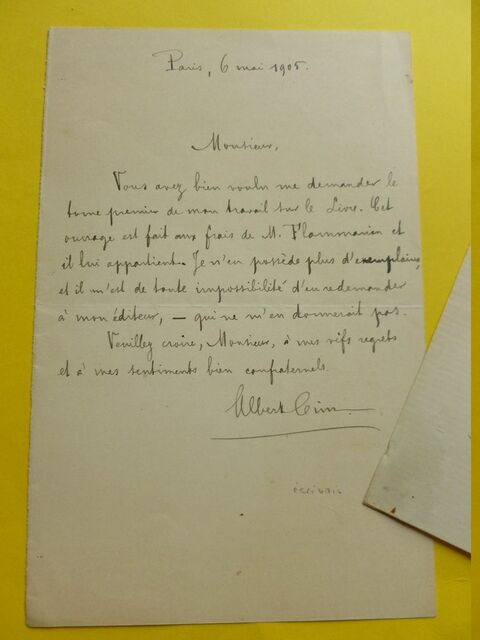 Paris, 6 mai 1905.
Monsieur,
Vous avez bien voulu me demander le
tome premier de mon travail sur le Livre. Cet
ouvrage est fait aux frais de M. Flammarion et
il lui appartient. Je n'en possède plus d'exemplaire,
et il m'est de toute impossibilité d'en redemander
à mon éditeur, — qui ne m'en donnerait pas.
Veuillez croire, Monsieur, à mes vifs regrets
et à mes sentiments bien confraternels.
Albert Cim
écrivain